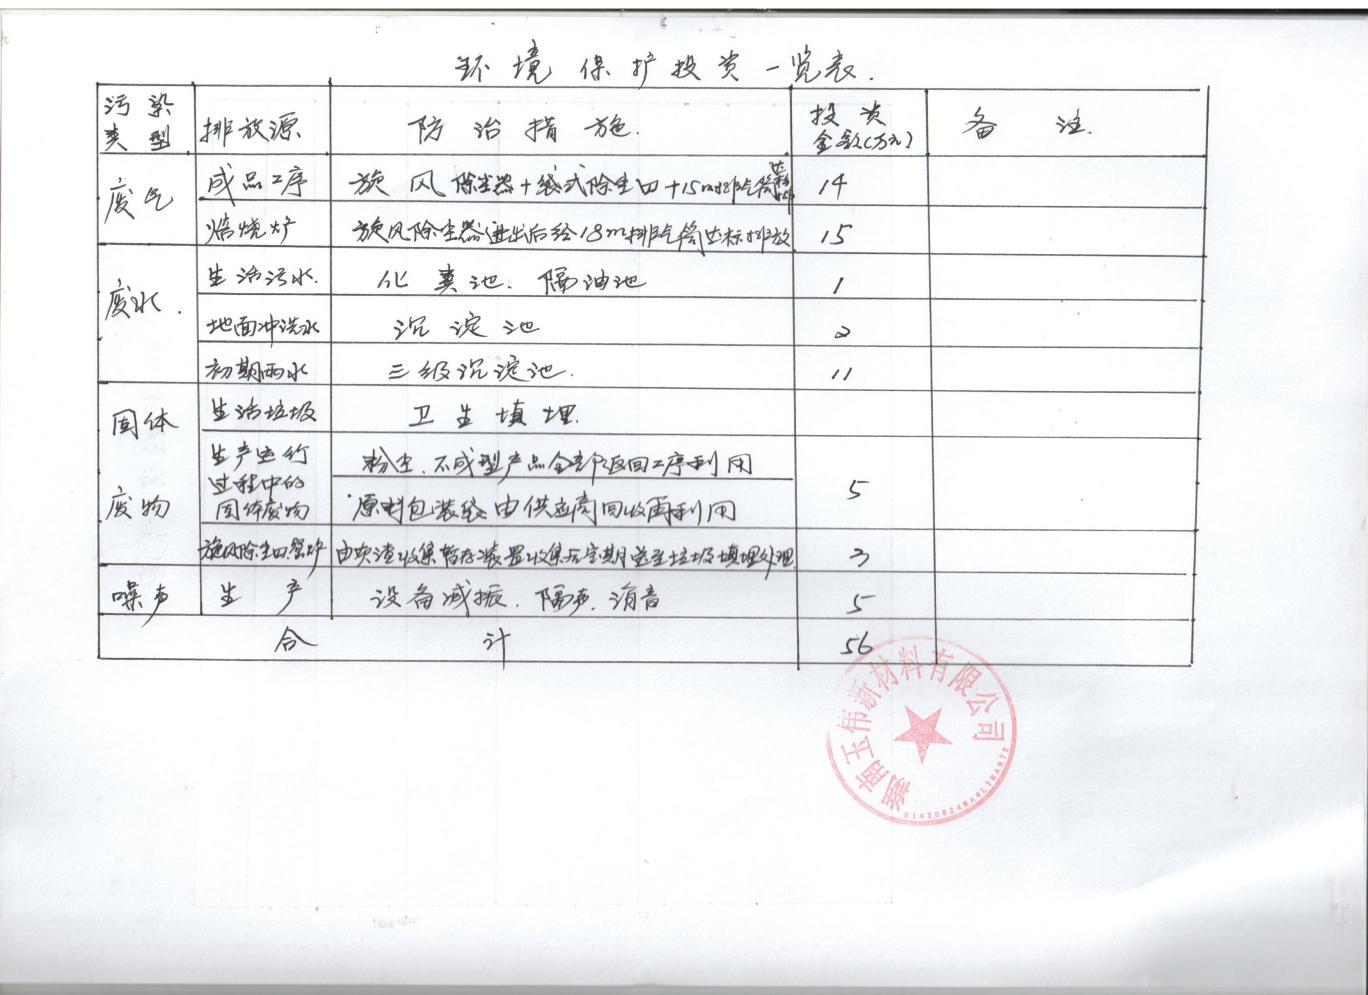 环境保护投资一览表.
污染类型 排放源 防治措施. 投资金额(万元) 备注.
废气 成品工序 旋风除尘器+袋式除尘口+15m排气筒 14
焙烧炉 旋风除尘器 后经18m排气筒达标排放 15
废水. 生活污水. 化粪池、隔油池 1
地面冲洗水 沉淀池 2
初期雨水 三级沉淀池. 11
固体废物 生活垃圾 卫生填埋.
生产运行过程中的固体废物 粉尘、不成型产品全部返回工序利用 5
原料包装袋由供应商回收再利用
旋风除尘口 由 收集暂存装置收集后定期送至垃圾填埋处理 3
噪声 生产 设备减振、隔声、消音 5
合计 56
湖南玉伟新材料有限公司